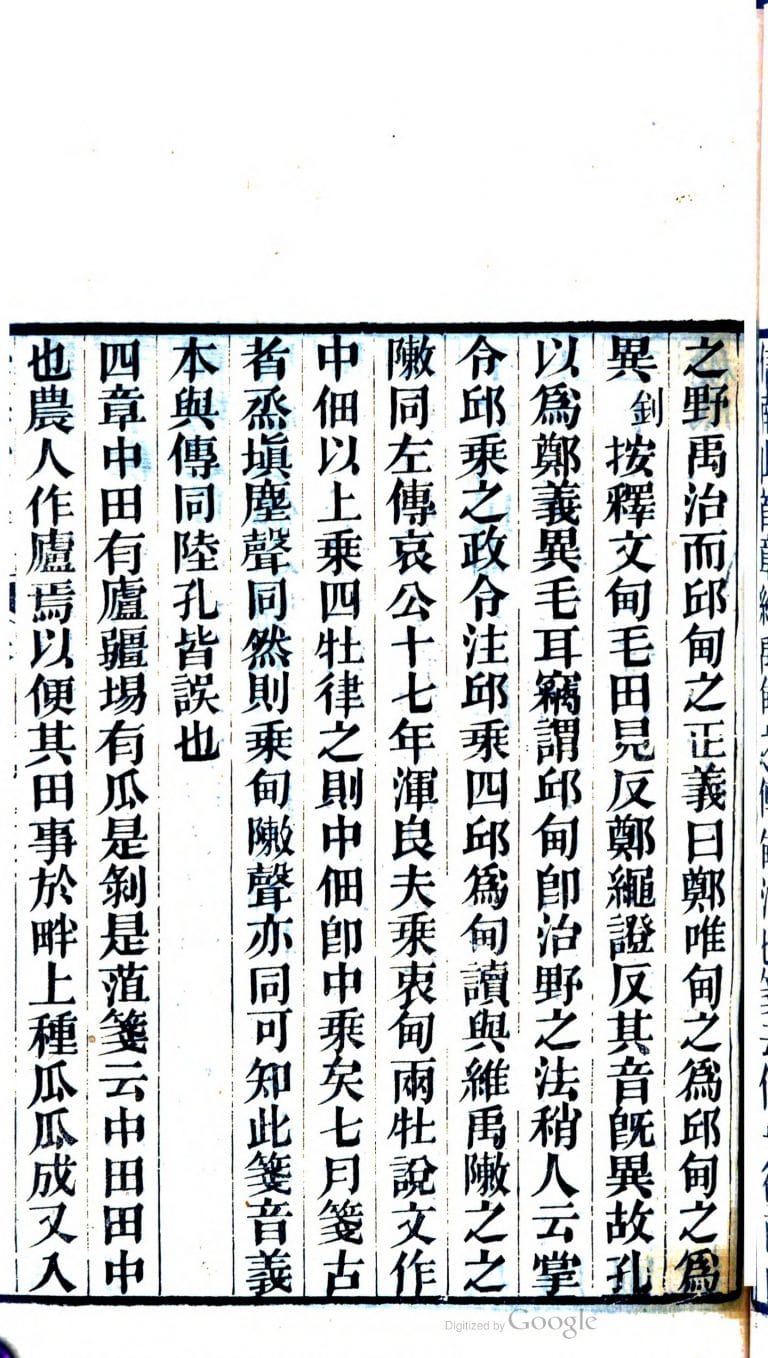 之野禹治而邱甸之正義曰鄭唯甸之爲邱甸之爲
異釗按釋文甸毛田見反鄭繩證反其音旣異故孔
以爲鄭義異毛耳竊謂邱甸卽治野之法稍人云掌
令邱乘之政令注邱乘四邱爲甸讀與維禹敶之之
敶同左傳哀公十七年渾良夫乘衷甸兩牡說文作
中佃以上乘四牡律之則中佃卽中乘矣七月箋古
者烝塡塵聲同然則乘甸敶聲亦同可知此箋音義
本與傳同陸孔皆誤也
四章中田有廬疆埸有瓜是剝是菹箋云中田田中
也農人作廬焉以便其田事於畔上種瓜瓜成又入
Digitized by Google